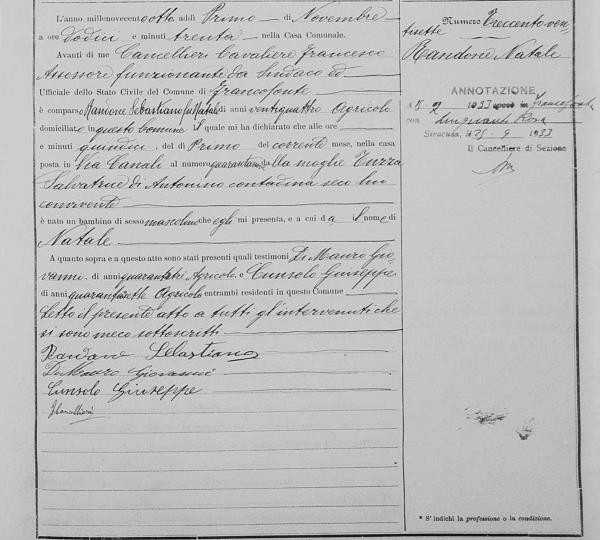 L'anno millenovecentootto addì Primo di Novembre
a ore Dodici e minuti trenta nella Casa Comunale.
Avanti di me Cancellieri Cavaliere Francesco
Assessore funzionante da Sindaco ed
Ufficiale dello Stato Civile del Comune di Francofonte
è comparso Randone Sebastiano fu Natale di anni ventiquattro Agricolo
domiciliato in questo Comune il quale mi ha dichiarato che alle ore
e minuti quindici, del dì Primo del corrente mese, nella casa
posta in Via Canali al numero dalla moglie Tuzza
Salvatrice di Antonino contadina seco lui
convivente
è nato un bambino di sesso mascolino che egli mi presenta, e a cui dà il nome di
Natale
A quanto sopra e a questo atto sono stati presenti quali testimoni Di Mauro Gio-
vanni, di anni quarantatré Agricolo e Cunsolo Giuseppe
di anni quarantasette Agricolo entrambi residenti in questo Comune
Letto il presente atto a tutti gl'intervenuti che
si sono meco sottoscritti
Randone Sebastiano
Di Mauro Giovanni
Cunsolo Giuseppe
F Cancellieri
Numero Trecentoven-
tisette
Randone Natale
ANNOTAZIONE
1933 sposò in Francofonte
con Rosa
Siracusa, lì 1933
Il Cancelliere di Sezione
* S' indichi la professione o la condizione.